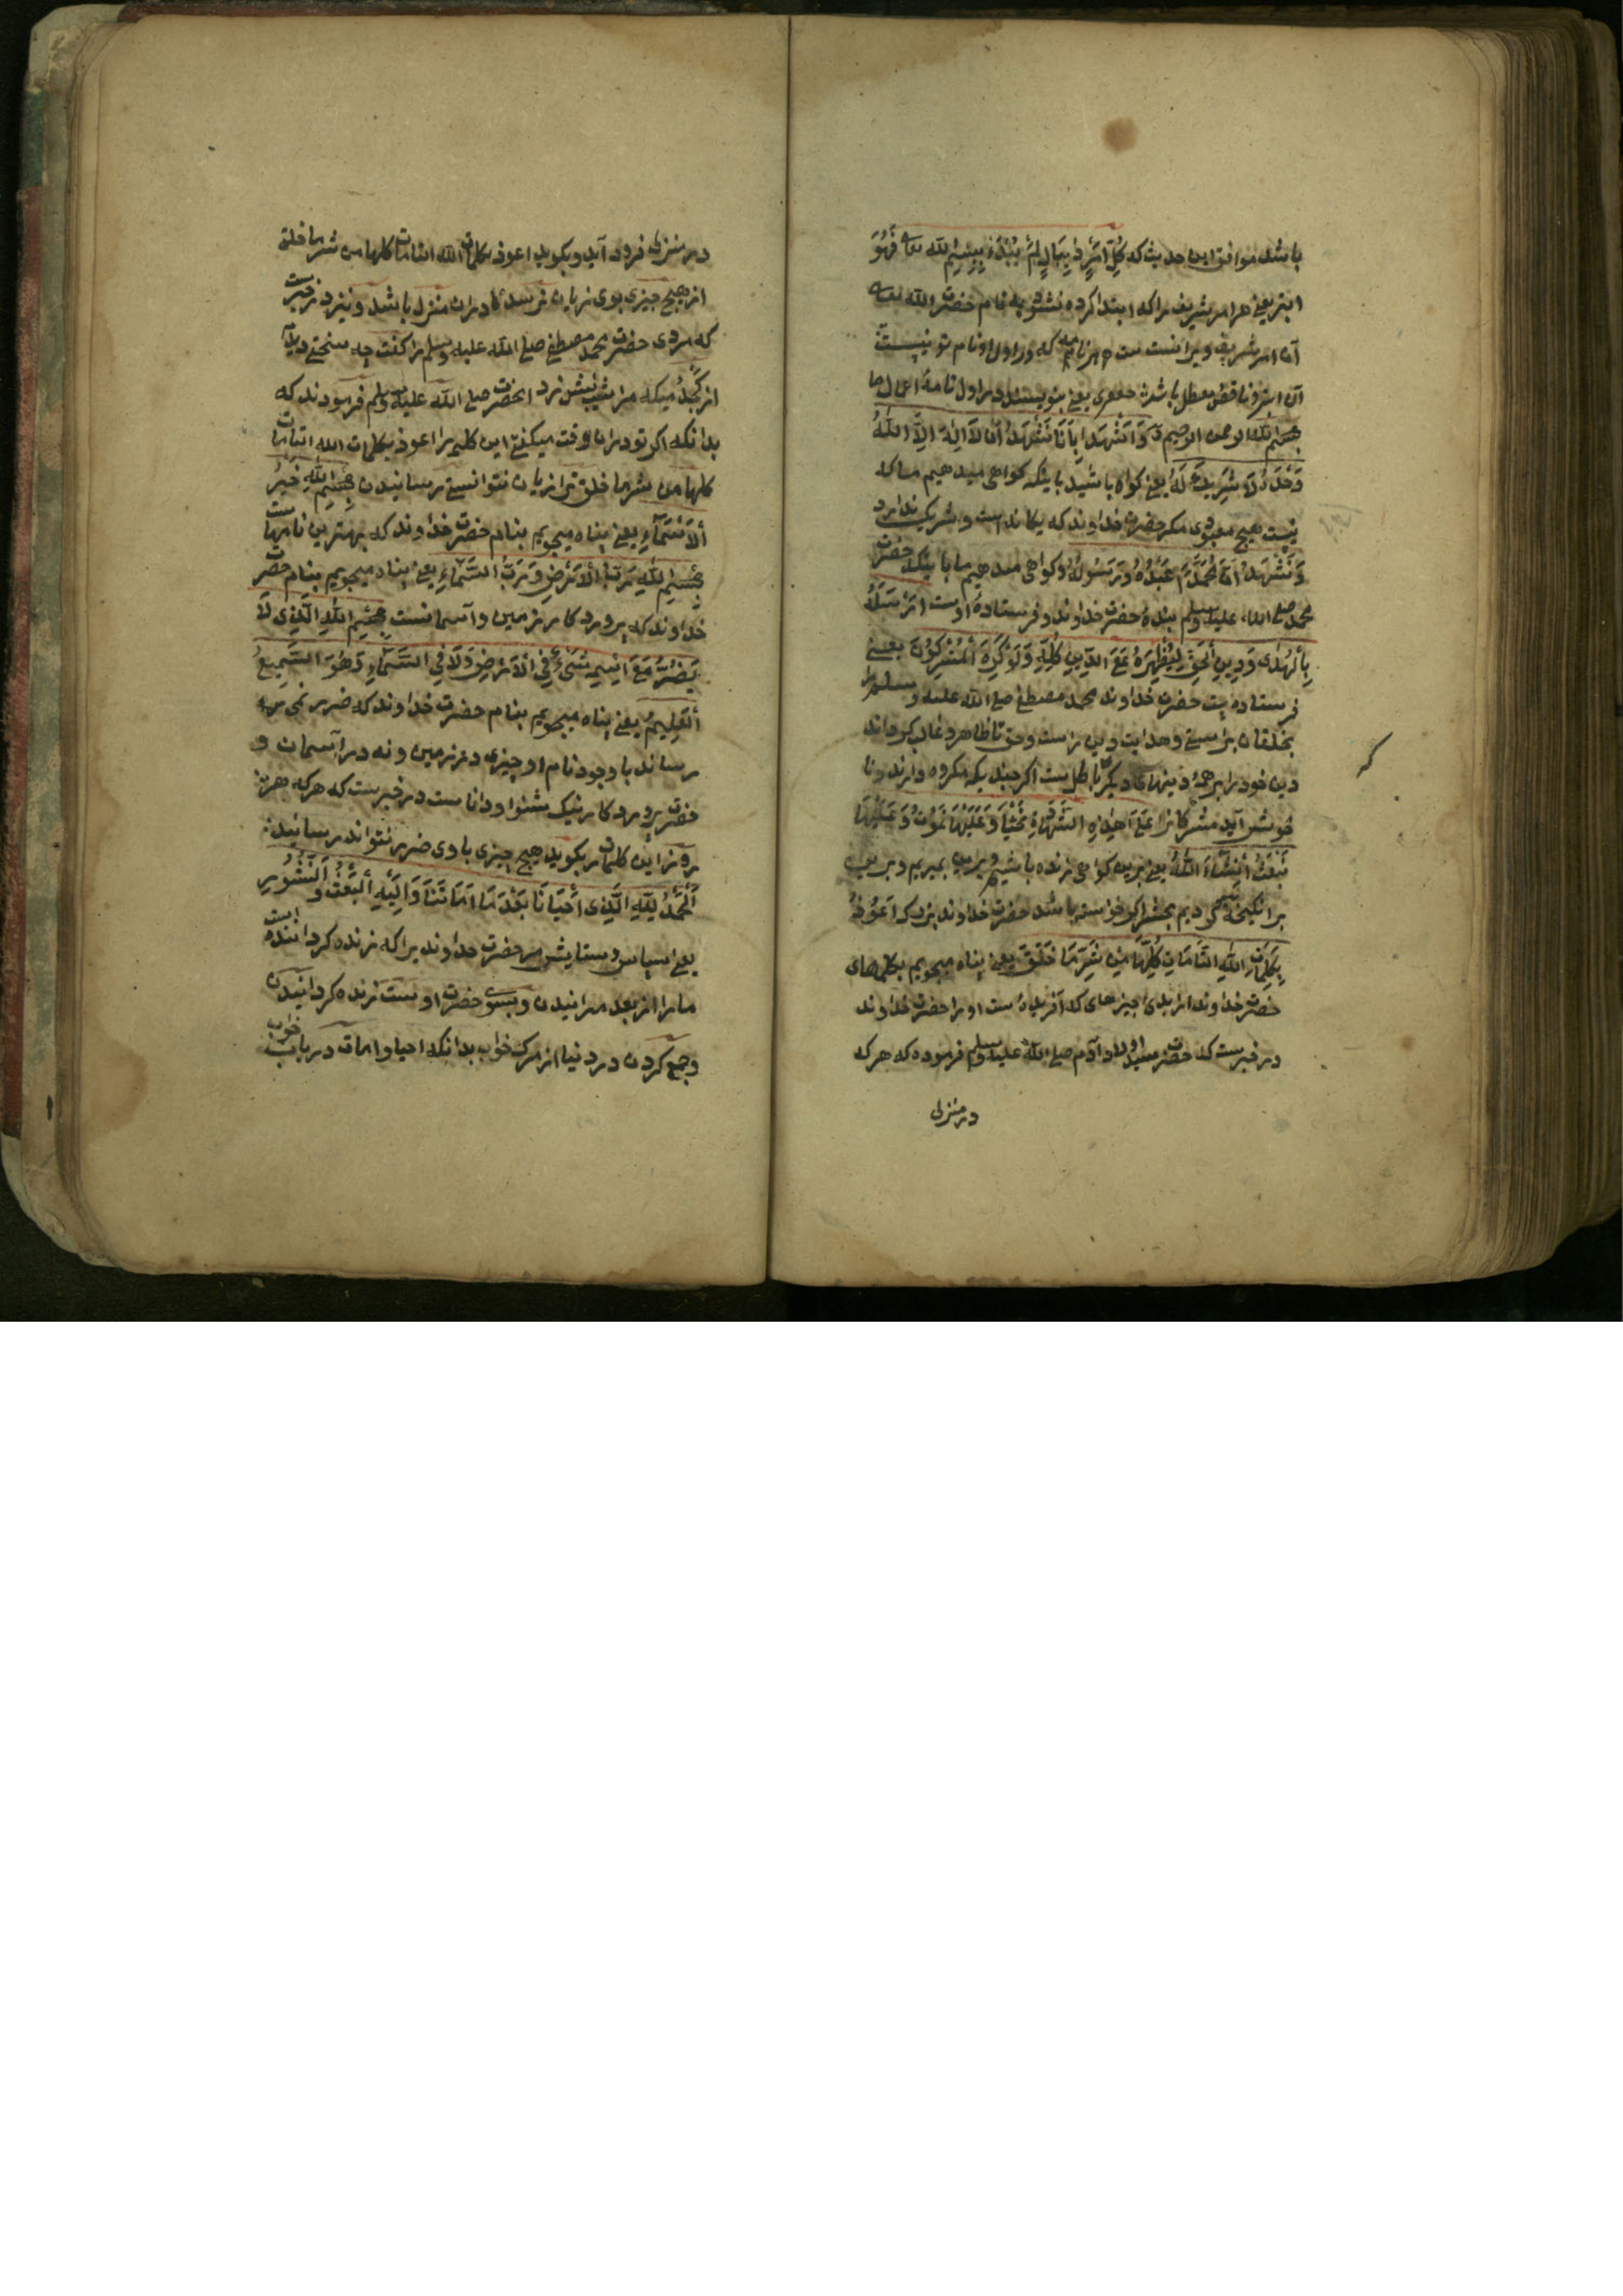 باشد موافق این حدیث که کُلُّ اَمْرٍ ذِیبَالٍ لَمْ یُبْدَءْ بِبِسْمِ لله تعا فَهُوَ
ابتر یعنی هر امر شریف را که ابتدا کرده نشود به نام حضرت الله تعا
آن امر شریف ویرا نسبت هر نامه که در اول او نام تو نیست
آن ابتر و ناقص معطل باشد یعنی بنویسند در اول نامهٔ اعمال ما
بسم لله الرحمن الرحیم وَاَشْهَدُ بِاَنَّا نَشْهَدُ اَنْ لَا اِلٰهَ اِلَّا اللهُ
وَحْدَهُ لَا شَرِیکَ لَهُ یعنی کواه باشید باینکه کواهی میدهیم ما که
نیست هیچ معبودی مکر حضرت خداوند که یکانه است و شریک ندارد
وَنَشْهَدُ اَنَّ مُحَمَّدًا عَبْدُهُ وَرَسُولُهُ و کواهی میدهیم ما باینکه حضرت
محمد صلی الله علیه وسلم بندهٔ حضرت خداوند و فرستادهٔ اوست اَرْسَلَهُ
بِالْهُدٰی وَدِینِ الْحَقِّ لِیُظْهِرَهُ عَلَی الدِّینِ کُلِّهِ وَلَوْ کَرِهَ الْمُشْرِکُونَ یعنی
فرستاده است حضرت خداوند محمد مصطفی صلی الله علیه وسلم را
بخلقان براستی و هدایت و دین راست و حق تا ظاهر و غالب کرداند
دین خود را بر همهٔ دینهای دیکر باطل ست اکر چندیکه مکروه دارند و نا
خوش آید مشرکانرا عَلٰی هٰذِهِ الشَّهَادَةِ نَحْیَا وَعَلَیْهَا نَمُوتُ وَعَلَیْهَا
نُبْعَثُ اِنْشَآءَ اللهُ یعنی برین کواهی زنده باشیم و برین بمیریم و برین
برانکیخته کردیم بحشر اکر خواسته باشد حضرت خداوند بزرک اَعُوذُ
بِکَلِمَاتِ اللهِ التَّامَّاتِ کُلِّهَا مِنْ شَرِّ مَا خَلَقَ یعنی پناه میجویم بکلمهای
حضرت خداوند از بدی چیزهای که آفریده است او را حضرت خداوند
در خبرست که حضرت سید اولاد آدم صلی الله علیه وسلم فرموده که هر که
در منزلی
در منزلی فرود آید و بکوید اعوذ بکلمات الله التامات کلها من شر ما خلق
از هیچ چیزی بوی زیان نرسد تا در ان منزل باشد و نیز در خبرست
که مردی حضرت محمد مصطفی صلی الله علیه وسلم را کفت چه سختی دیدم
از کژدمیکه مرا شب نیش زد انحضرت صلی الله علیه وسلم فرمودند که
بدانکه اکر تو در ان وقت میکفتی این کلمه را اعوذ بکلمات الله التامات
کلها من شر ما خلق ترا زیان نتوانستی رسانیدن بِسْمِ اللهِ خَیْرِ
الْاَسْمَآءِ یعنی پناه میجویم بنام حضرت خداوند که بهترین نامهاست
بِسْمِ اللهِ رَبِّ الْاَرْضِ وَرَبِّ السَّمَآءِ یعنی پناه میجویم بنام حضرت
خداوند که پروردکار زمین و آسمانست بِسْمِ اللهِ الَّذِی لَا
یَضُرُّ مَعَ اسْمِهِ شَیْءٌ فِی الْاَرْضِ وَلَا فِی السَّمَآءِ وَهُوَ السَّمِیعُ
الْعَلِیمُ یعنی پناه میجویم بنام حضرت خداوند که ضرر نمی
رساند با وجود نام او چیزی در زمین و نه در آسمان و
حضرت پروردکار نیک شنوا و داناست در خبرست که هر که هر
روز این کلمات بکوید هیچ چیزی باوی ضرر نتواند رسانیدن
اَلْحَمْدُ لِلّٰهِ الَّذِی اَحْیَانَا بَعْدَ مَا اَمَاتَنَا وَاِلَیْهِ الْبَعْثُ وَ النُّشُورِ
یعنی سپاس و ستایش مر حضرت خداوند یرا که زنده کرداننده است
ما را از بعد میرانیدن و بسوی حضرت اوست زنده کردانیدن
و جمع کردن در دنیا از مرک خواب بدانکه احیا و اماتت در باب خواب